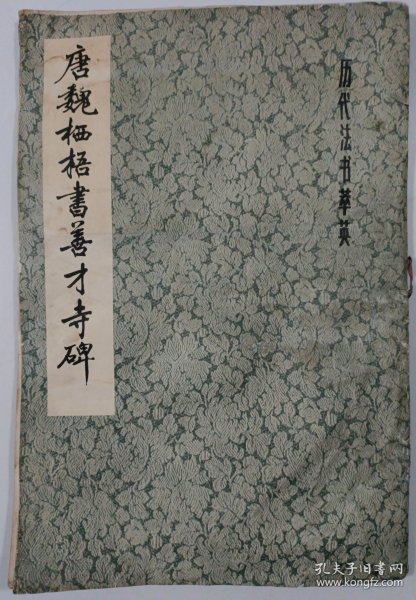 历代法书萃英
唐魏栖梧書善才寺碑
孔夫子旧书网
www.kongfz.com